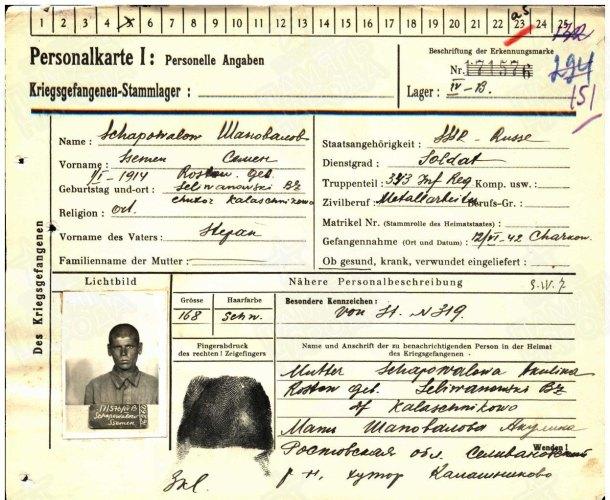 1 2 3 4 5 6 7 8 9 10 11 12 13 14 15 16 17 18 19 20 21 22 23 24 25
Personalkarte I: Personelle Angaben
Kriegsgefangenen-Stammlager:
Beschriftung der Erkennungsmarke
Nr. 171576
Lager: IV-B.
294
151
Des Kriegsgefangenen
Name: Schapowalow Шаповалов
Vorname: Ssemen Семен
Geburtstag und-ort: 1/I-1914 Rostow. geb.
Seliwanowski BZ
chutor Kalaschnikowo
Religion: Ort.
Vorname des Vaters: Stepan
Familienname der Mutter:
Staatsangehörigkeit: SSR - Russe
Dienstgrad: Soldat
Truppenteil: 333 Inf Reg Komp. usw.:
Zivilberuf: Metallarbeiter Berufs-Gr.:
Matrikel Nr. (Stammrolle des Heimatstaates):
Gefangennahme (Ort und Datum): 12/VI-42 Charkow.
Ob gesund, krank, verwundet eingeliefert:
Lichtbild
171576 IV B
Schapowalow
Ssemen
Nähere Personalbeschreibung
Grösse
168
Haarfarbe
Schw.
Besondere Kennzeichen:
von St. N 319.
Fingerabdruck
des rechten! Zeigefingers
Name und Anschrift der zu benachrichtigenden Person in der Heimat
des Kriegsgefangenen
Mutter Schapowalowa Akulina
Rostow geb. Seliwanowski BZ
Kalaschnikowo
Мать Шаповалова Акулина
Wenden!
Ростовская обл. Селивановский
р-н, хутор Калашниково